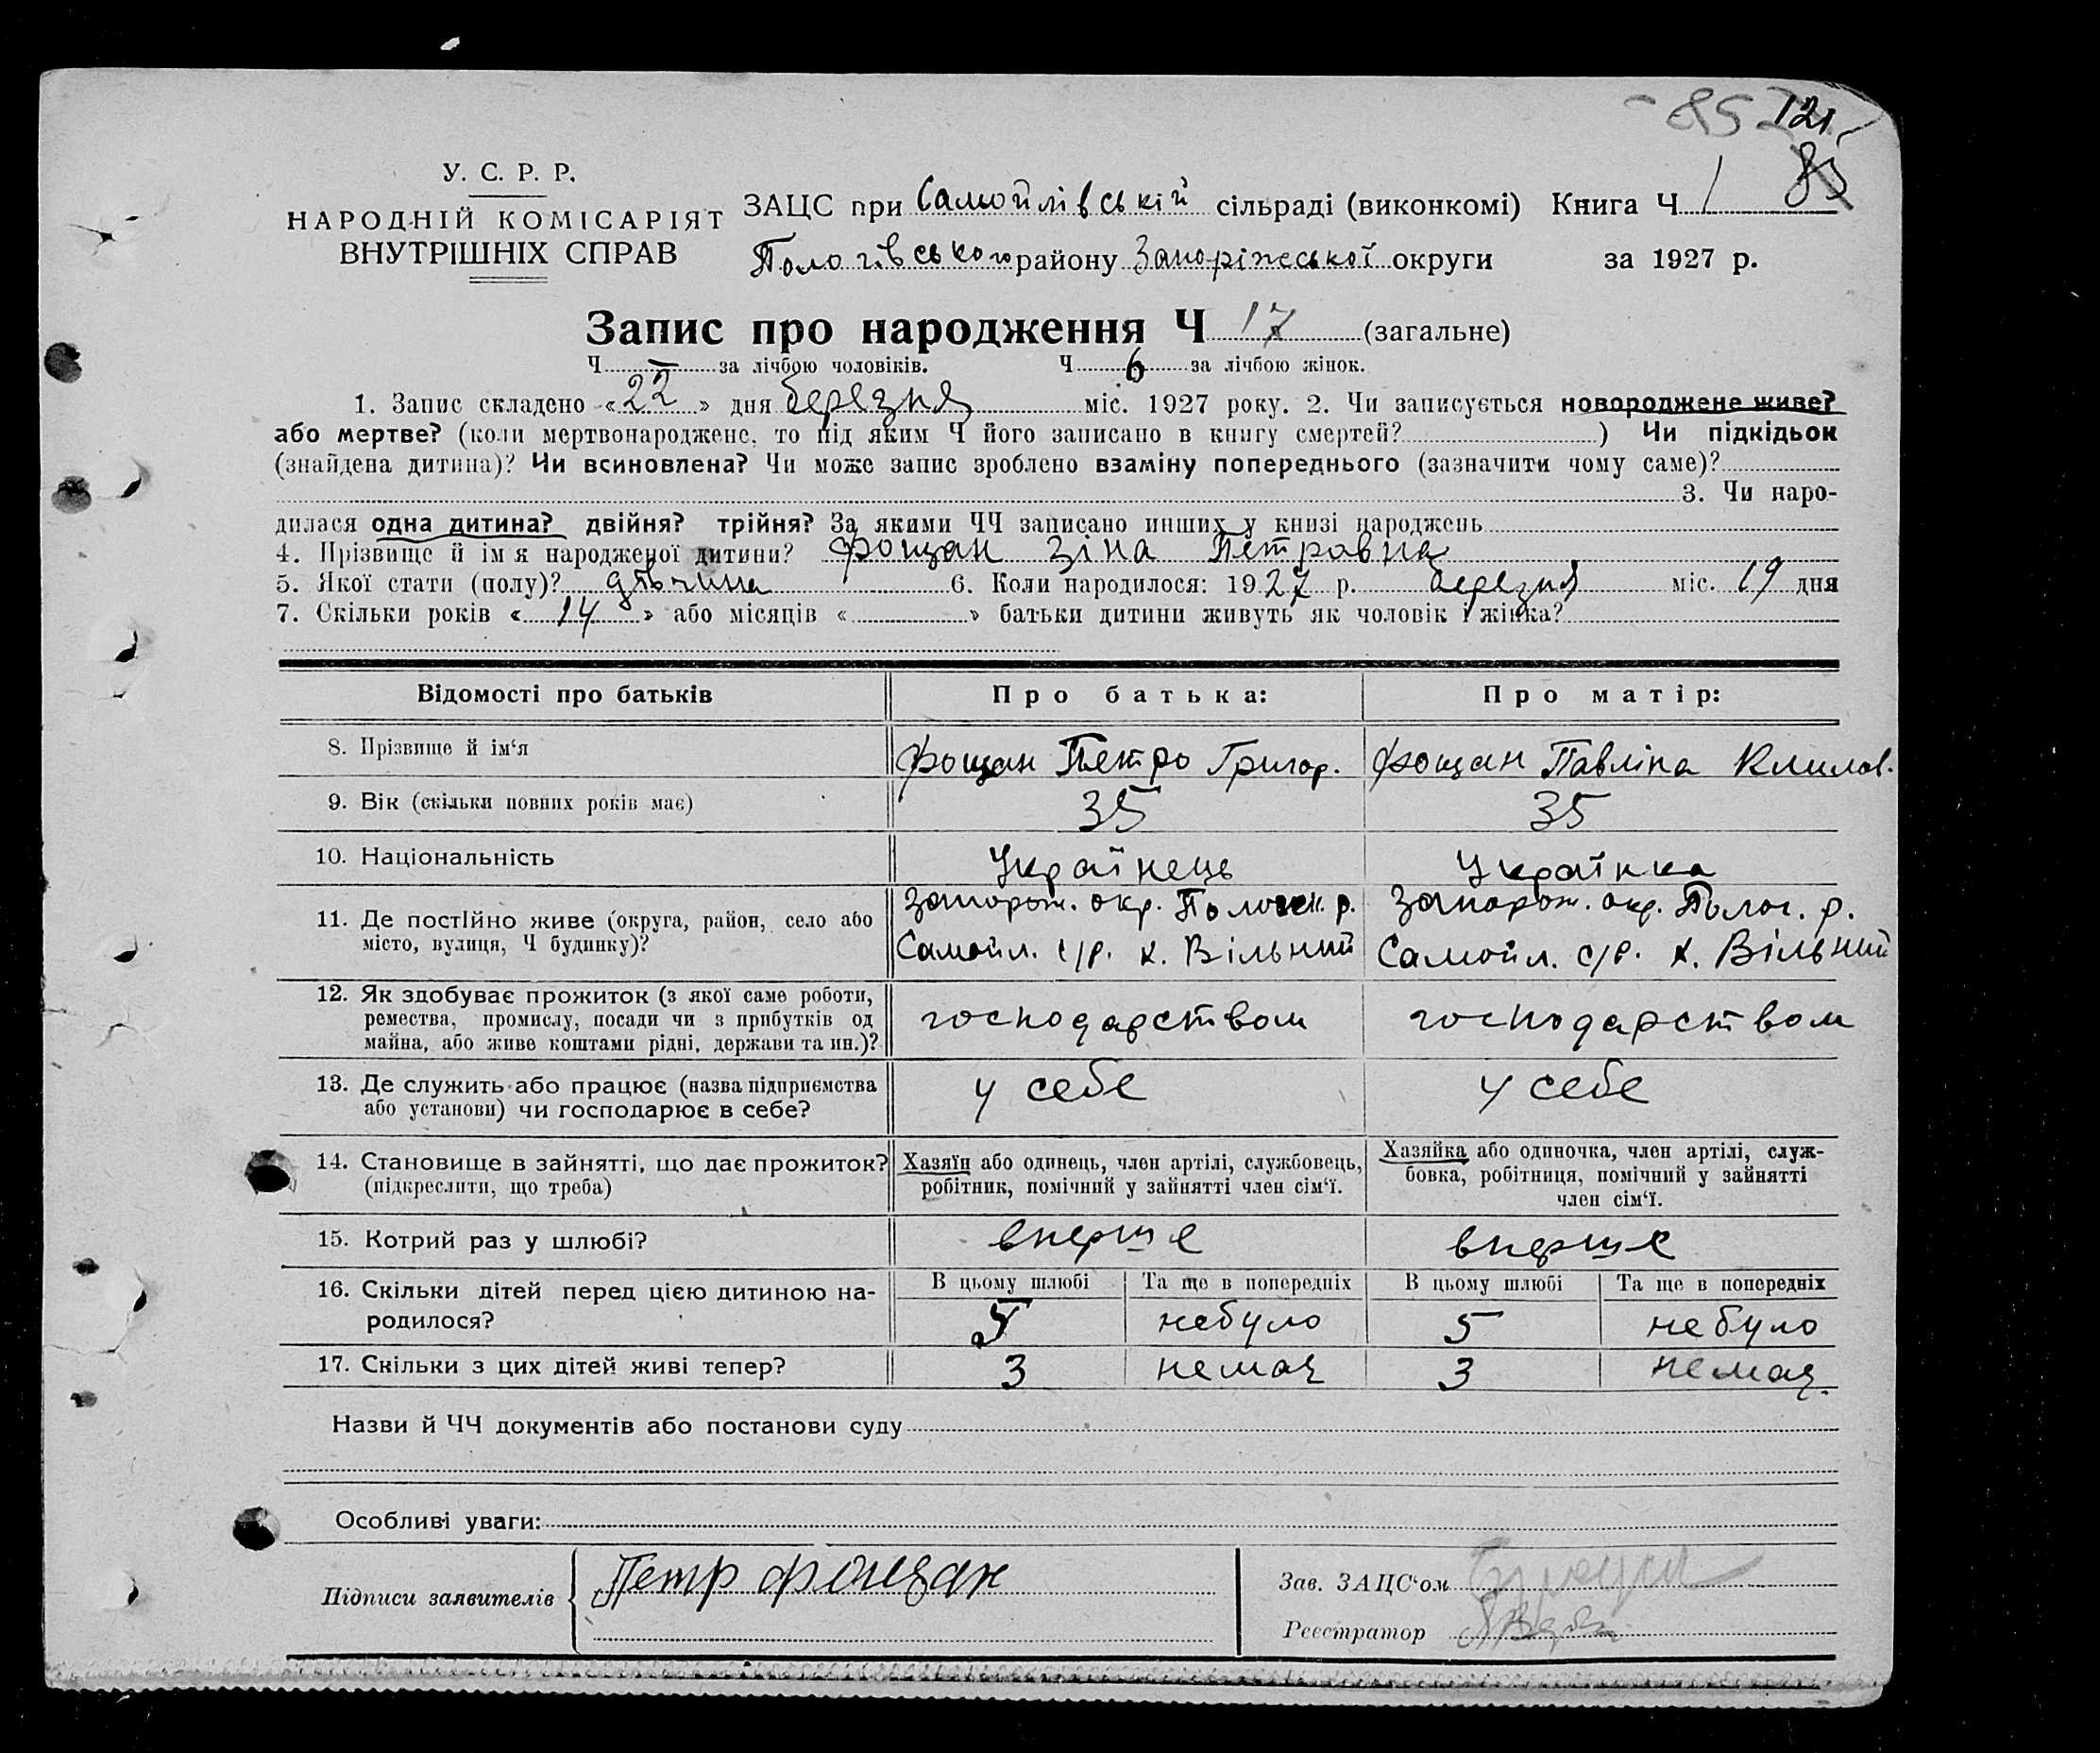 121
85
У. С. Р. Р.
НАРОДНІЙ КОМІСАРІЯТ
ВНУТРІШНІХ СПРАВ
ЗАЦС при Самойлівській сільраді (виконкомі) Книга Ч 1 83
Пологівського району Запоріжської округи за 1927 р.
Запис про народження Ч 17 (загальне)
Ч — за лічбою чоловіків. Ч 6 за лічбою жінок.
1. Запис складено «22» дня березня міс. 1927 року. 2. Чи записується новороджене живе?
або мертве? (коли мертвонароджене, то під яким Ч його записано в книгу смертей? ) Чи підкідьок
(знайдена дитина)? Чи всиновлена? Чи може запис зроблено взаміну попереднього (зазначити чому саме)?
3. Чи наро-
дилася одна дитина? двійня? трійня? За якими ЧЧ записано инших у книзі народжень
4. Прізвище й імя народженої дитини? Фощан Зіна Петровна
5. Якої стати (полу)? дівчина 6. Коли народилося: 1927 р. березня міс. 19 дня
7. Скільки років «14» або місяців « » батьки дитини живуть як чоловік і жінка?
Відомості про батьків Про батька: Про матір:
8. Прізвище й ім‘я Фощан Петро Григор. Фощан Павліна Климов.
9. Вік (скільки повних років має) 35 35
10. Національність Українець Українка
11. Де постійно живе (округа, район, село або Запорож. окр. р. Запорож. окр. Полог. р.
місто, вулиця, Ч будинку)? Самойл. с/р. х. Вільний Самойл. с/р. х. Вільний
12. Як здобуває прожиток (з якої саме роботи,
ремества, промислу, посади чи з прибутків од господарством господарством
майна, або живе коштами рідні, держави та ин.)?
13. Де служить або працює (назва підприємства у себе у себе
або установи) чи господарює в себе?
14. Становище в зайнятті, що дає прожиток? Хазяїн або одинець, член артілі, службовець, Хазяйка або одиночка, член артілі, служ-
(підкреслити, що треба) робітник, помічний у зайнятті член сім‘ї. бовка, робітниця, помічний у зайнятті
член сім‘ї.
15. Котрий раз у шлюбі? вперше вперше
16. Скільки дітей перед цією дитиною на- В цьому шлюбі Та ще в попередніх В цьому шлюбі Та ще в попередніх
родилося? 5 небуло 5 небуло
17. Скільки з цих дітей живі тепер? 3 немає 3 немає
Назви й ЧЧ документів або постанови суду
Особливі уваги:
Підписи заявителів Петр Фощан Зав. ЗАЦС‘ом
Реєстратор